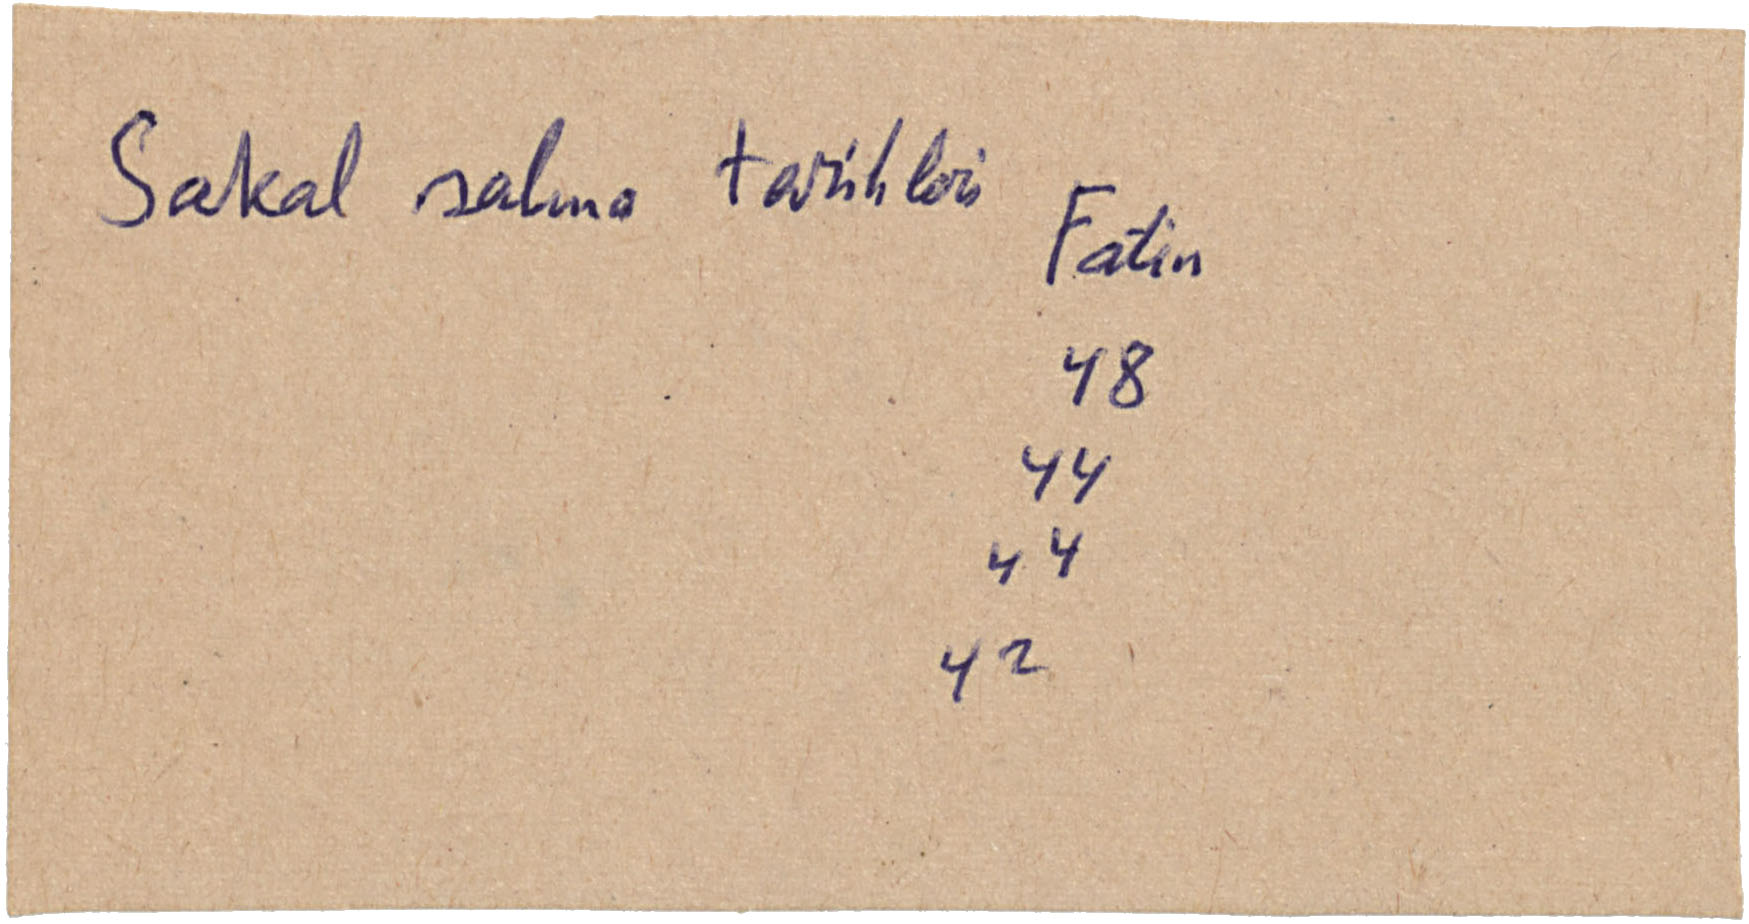 Sakal salma tarihleri
Fatin
48
44
44
42